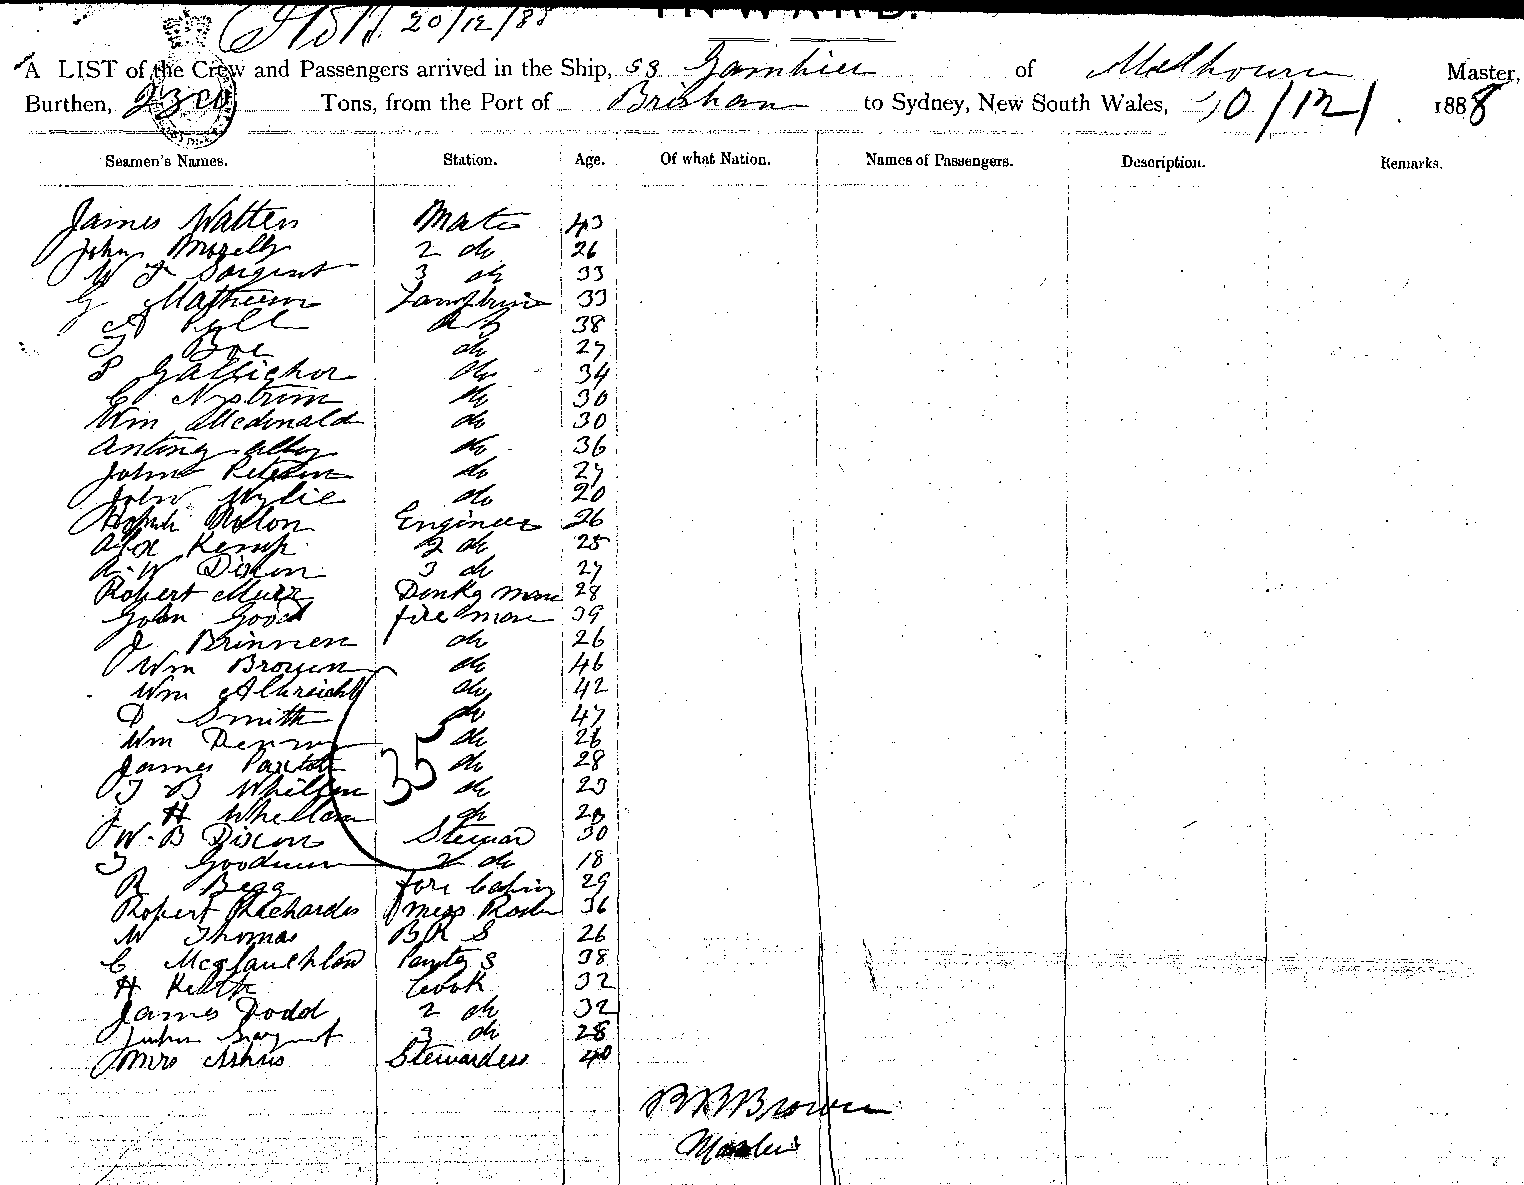 INWARD.
20/12/88
A LIST of the Crew and Passengers arrived in the Ship, SS Gambier of Melbourne Master,
Burthen, Tons, from the Port of Brisbane to Sydney, New South Wales, 20/12/ 1888
Seamen's Names. Station. Age. Of what Nation. Names of Passengers. Description. Remarks.
James Watten Mate 43
John Mozelly 2 do 26
W F Sargent 3 do 33
G Mathewson Lamptrimer 33
A Pyll A B 38
T Boe do 27
P Gallighor do 34
C Nystrom do 30
Wm Mcdonald do 30
Antiny Alby do 36
John Peterson do 27
John Wylie do 20
Hugh Nelon Engineer 26
Alex Kemp 2 do 25
A. W Dixon 3 do 27
Robert Muir Donky man 28
John Good fire man 39
J Brinnen do 26
Wm Brown do 46
Wm Albreicht do 42
D Smith do 47
Wm Denny do 26
James Paxton do 28
T B Whillem do 23
J H Whellam do 28
35
W. B Dixon Stewar 30
T Goodman 2 do 18
R Begg fore Cabin 29
Robert Richardes mess Room 36
W Thomas B R S 26
C McGlauchlan Pantry S 38
H Keith Cook 32
James Dodd 2 do 32
John Sargent 3 do 28
Mrs Stewardess 40
Brown
Master